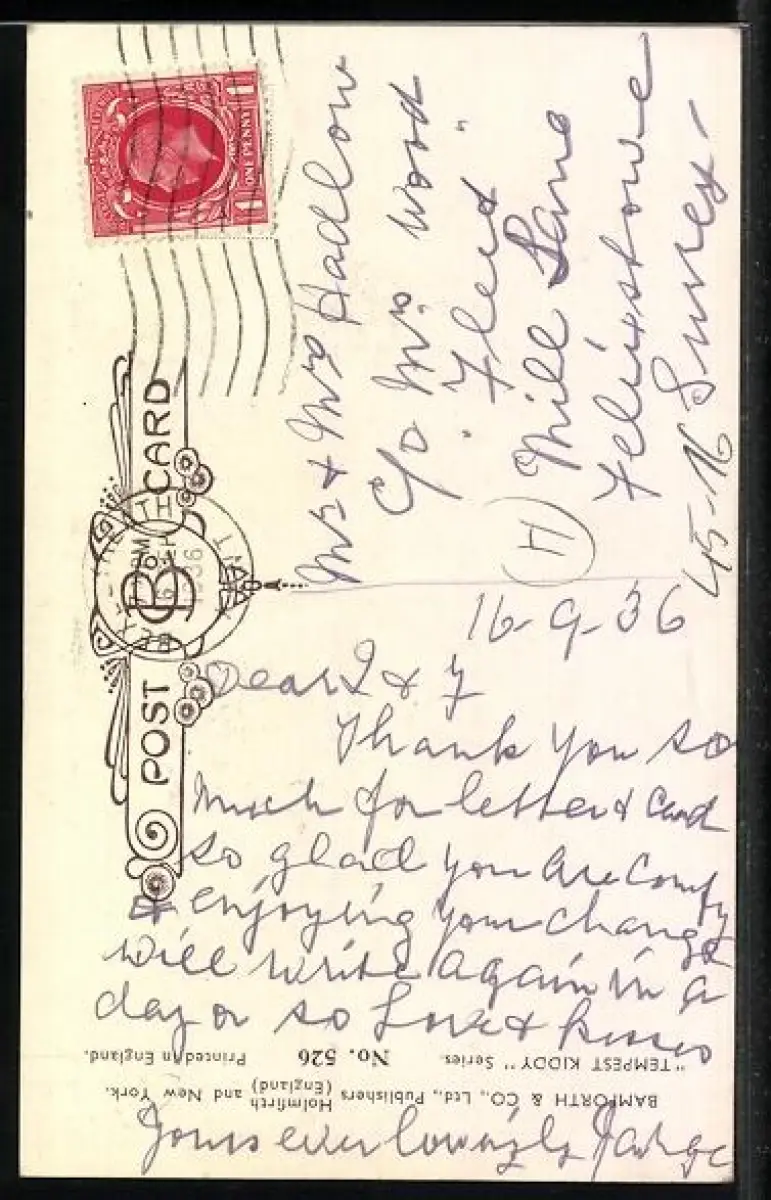 POST CARD
B & Co
ONE PENNY
1 1
1936
Mr & Mrs Hadlow
C/o Mrs Wood
"Fleet"
Mill Lane
Felixstowe
Surrey
45-16
H
16-9-36
Dear & 
Thank you so
much for letter & card
so glad you are comfy
& enjoying your change
will write again in a
day or so Love & kisses
Yours ever lovingly
"TEMPEST KIDDY" Series. No. 526 Printed in England.
BAMFORTH & CO., Ltd., Publishers (England)
Holmfirth and New York.